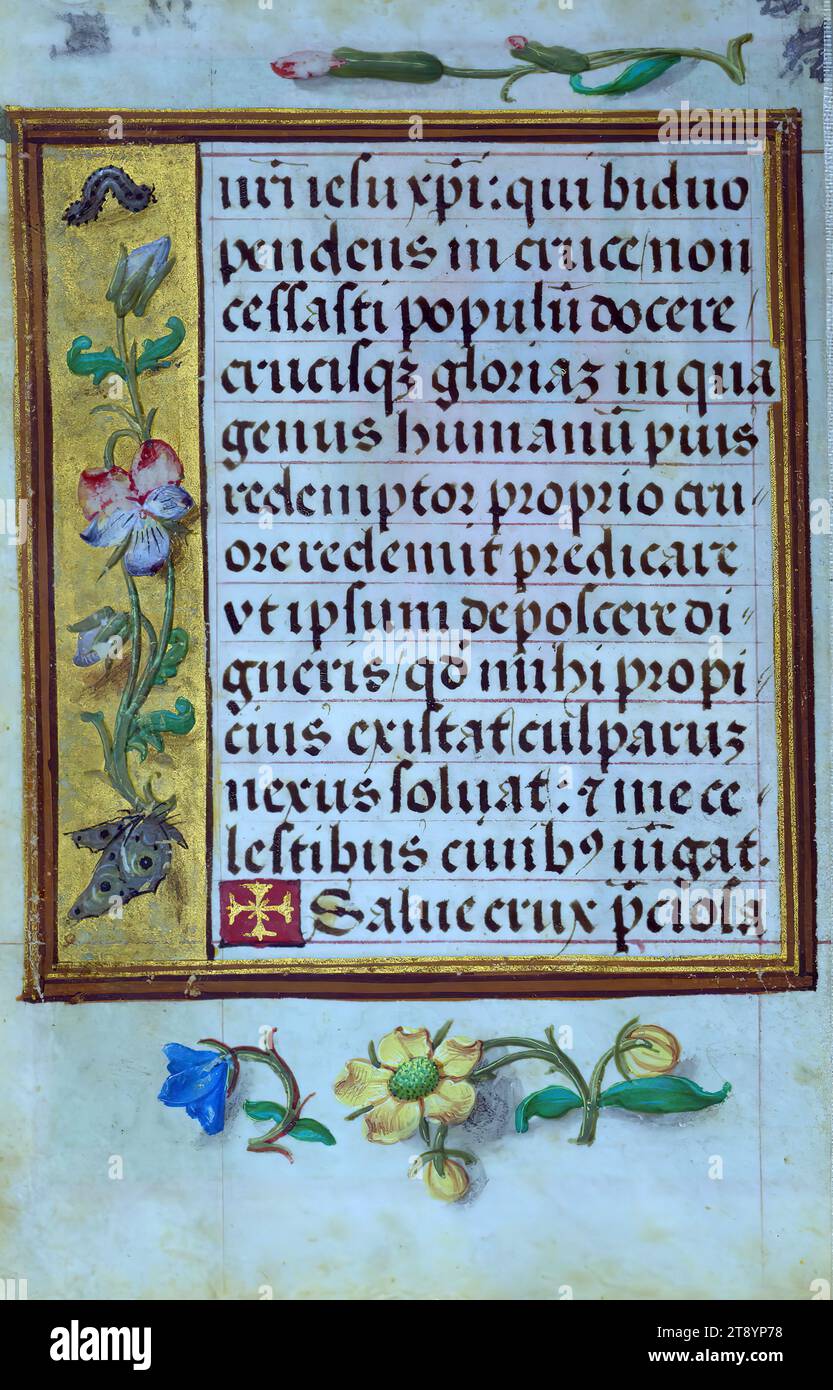 nr̄i iesu xp̄i: qui biduo
pendens in cruce non
cessasti populū docere
crucisqꝫ gloriaꝫ in qua
genus humanū puis
redemptor proprio cru〃
ore redemit predicare
vt ipsum deposcere di〃
gneris qd̄ mihi propi〃
cius existat culparuꝫ
nexus soluat: ⁊ me ce〃
lestibus ciuibꝰ iūgat.
Salue crux p̄ciosa
alamy
Image ID: 2T8YP78
www.alamy.com